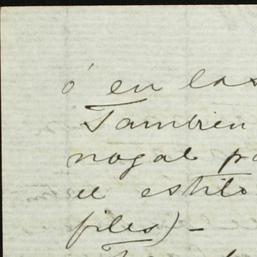 ó en las
Tambien
nogal
el estilo
files) -